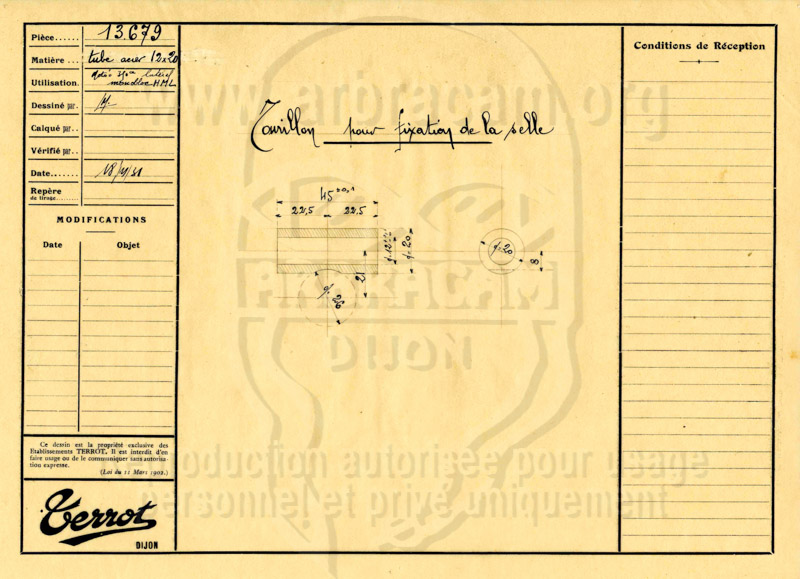 Pièce...... 13.679
Matière... tube acier 12x20
Utilisation. latéral
monobloc HML
Dessiné par.
Calqué par..
Vérifié par..
Date.......
Repère
de tirage
MODIFICATIONS
Date Objet
Ce dessin est la propriété exclusive des
Etablissements TERROT, Il est interdit d'en
faire usage ou de le communiquer sans autorisa-
tion expresse.
(Loi du 11 Mars 1902.)
Terrot
DIJON
Tourillon pour fixation de la selle
45
22,5 22,5
ø=20
ø=20
8
21
ø=26
Conditions de Réception
www.arbracam.org
ARBRACAM
DIJON
reproduction autorisée pour usage
personnel et privé uniquement